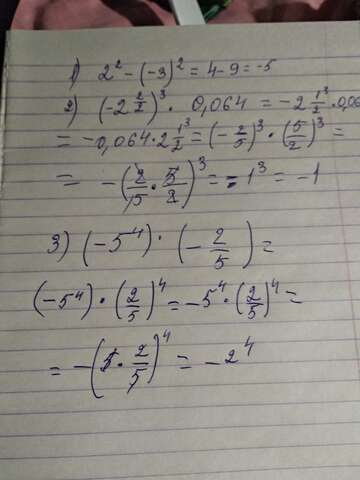 1) 2² - (-3)² = 4 - 9 = -5
2) (-2 2/2)³ · 0,064 = -2 1/2³ · 0,06
= -0,064 · 2 1/2³ = (-2/5)³ · (5/2)³ =
= -(2/5 · 5/2)³ = -1³ = -1
3) (-5⁴) · (-2/5) =
(-5⁴) · (2/5)⁴ = -5⁴ · (2/5)⁴ =
= -(5 · 2/5)⁴ = -2⁴